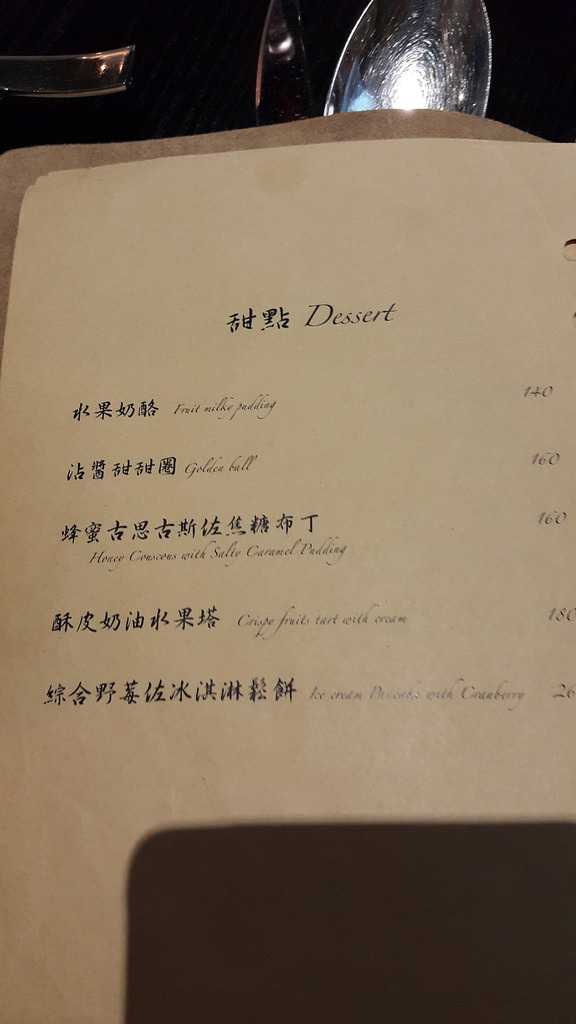 甜點 Dessert
水果奶酪 Fruit milky pudding 140
沾醬甜甜圈 Golden ball 160
蜂蜜古思古斯佐焦糖布丁 160
Honey Couscous with Salty Caramel Pudding
酥皮奶油水果塔 Crispy fruits tart with cream 180
綜合野莓佐冰淇淋鬆餅 Ice cream Pancake with Cranberry 26